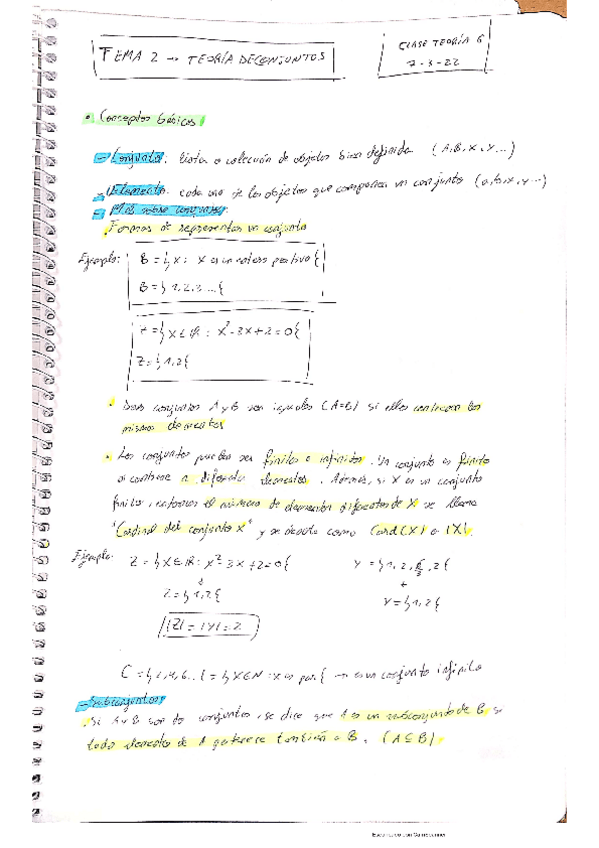 TEMA 2 → TEORÍA DE CONJUNTOS
CLASE TEORÍA 6
7-3-22
• Conceptos básicos
- Conjunto: lista o colección de objetos bien definida (A, B, X, Y...)
- Elemento: cada uno de los objetos que componen un conjunto (a, b, x, y...)
- Más sobre conjuntos:
Formas de representar un conjunto
Ejemplo: B = { x : x es un entero positivo }
B = { 1, 2, 3 ... }
Z = { x ∈ ℝ : x² - 3x + 2 = 0 }
Z = { 1, 2 }
• Dos conjuntos A y B son iguales (A=B) si ellos contienen los
mismos elementos
• Los conjuntos pueden ser finitos o infinitos. Un conjunto es finito
si contiene n diferentes elementos. Además, si X es un conjunto
finito, entonces el número de elementos diferentes de X se llama
"Cardinal del conjunto X" y se denota como Card(X) o |X|.
Ejemplo: Z = { x ∈ ℝ : x² - 3x + 2 = 0 } Y = { 1, 2, 6/3, 2 }
↓ ↓
Z = { 1, 2 } Y = { 1, 2 }
|Z| = |Y| = 2
C = { 2, 4, 6.. } = { x ∈ N : x es par } → es un conjunto infinito
- Subconjuntos
. Si A y B son conjuntos, se dice que A es un subconjunto de B si
todo elemento de A pertenece también a B. (A ⊆ B)
Escaneado con CamScanner